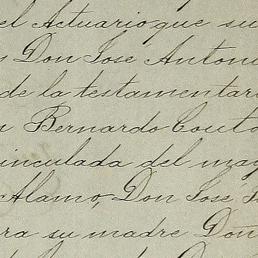 el Actuario que su
Don Jose Antoni
de la testamentari
Bernardo Couto
inculada del
Alamo, Don José
ra su madre Don